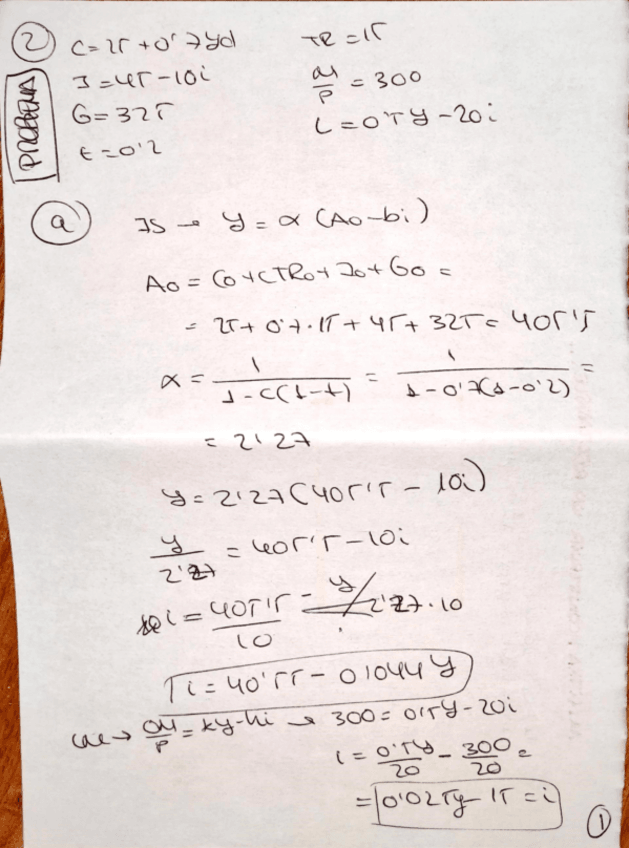 ② C = 25 + 0'7yd TR = 15
PROBLEMA
I = 45 - 10i M/P = 300
G = 325 L = 0'5y - 20i
t = 0'2
ⓐ IS → y = α (A0 - bi)
A0 = C0 + cTR0 + I0 + G0 =
= 25 + 0'7·15 + 45 + 325 = 405'5
α = 1/(1-c(1-t)) = 1/(1-0'7(1-0'2)) =
= 2'27
y = 2'27(405'5 - 10i)
y/2'27 = 405'5 - 10i
i = 405'5/10 - y/2'27·10
i = 40'55 - 0'044y
LM → M/P = ky - hi → 300 = 0'5y - 20i
i = 0'5y/20 - 300/20 =
= 0'025y - 15 = i
①